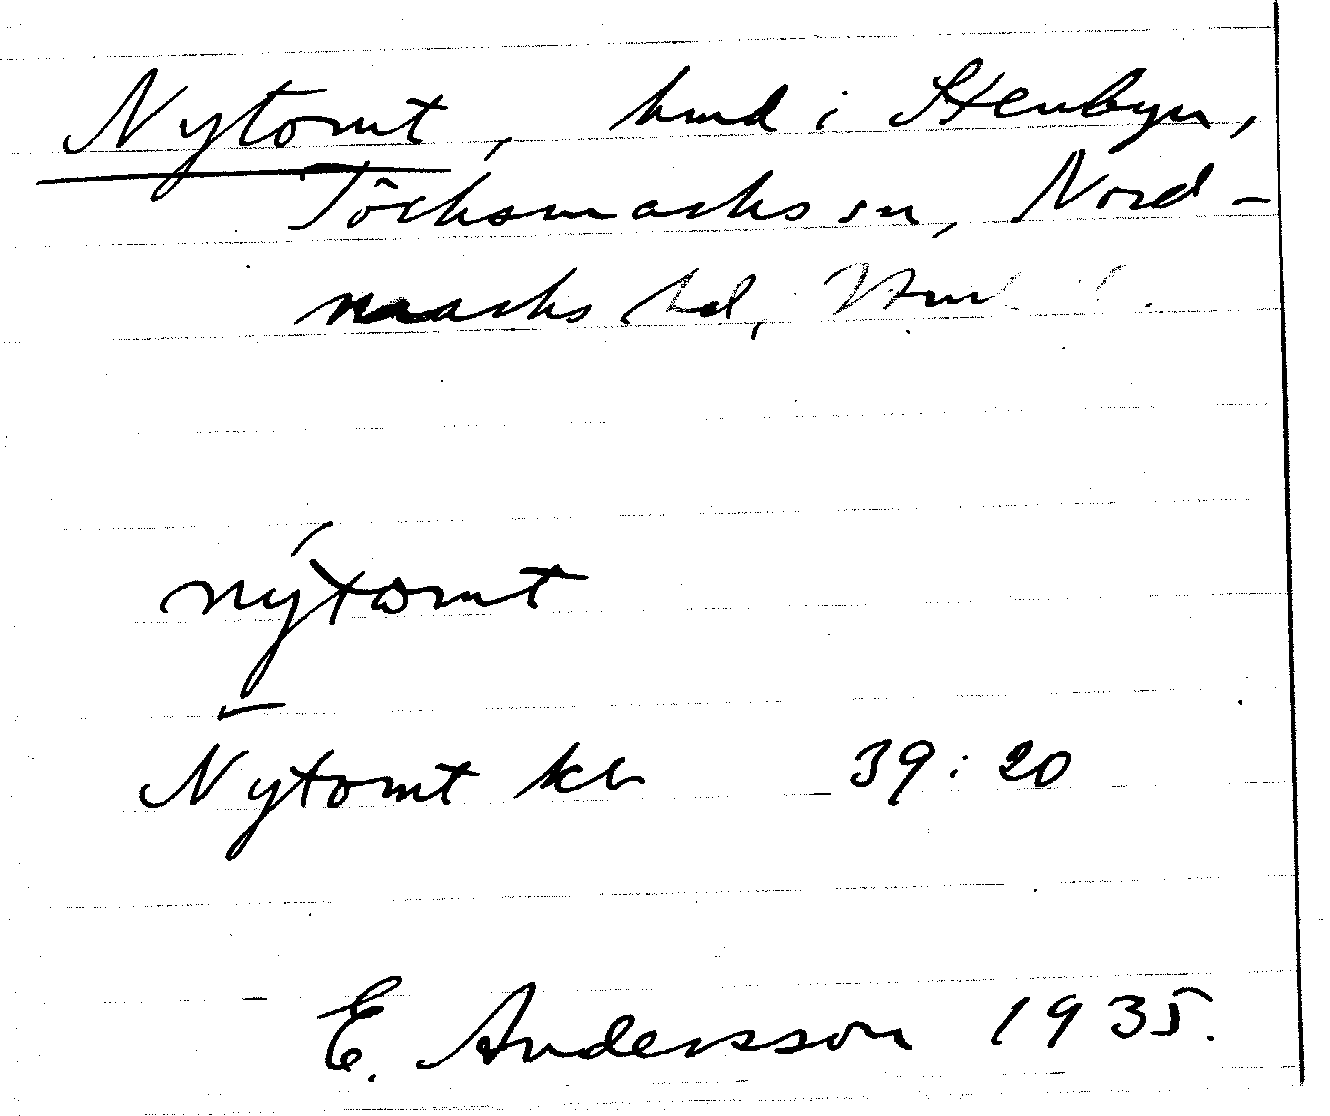 Nytomt, hmd i Stenbyn,
Töcksmarks sn, Nord-
marks hd,
nýtomt
Nytomt kb 39:20
E. Andersson 1935.